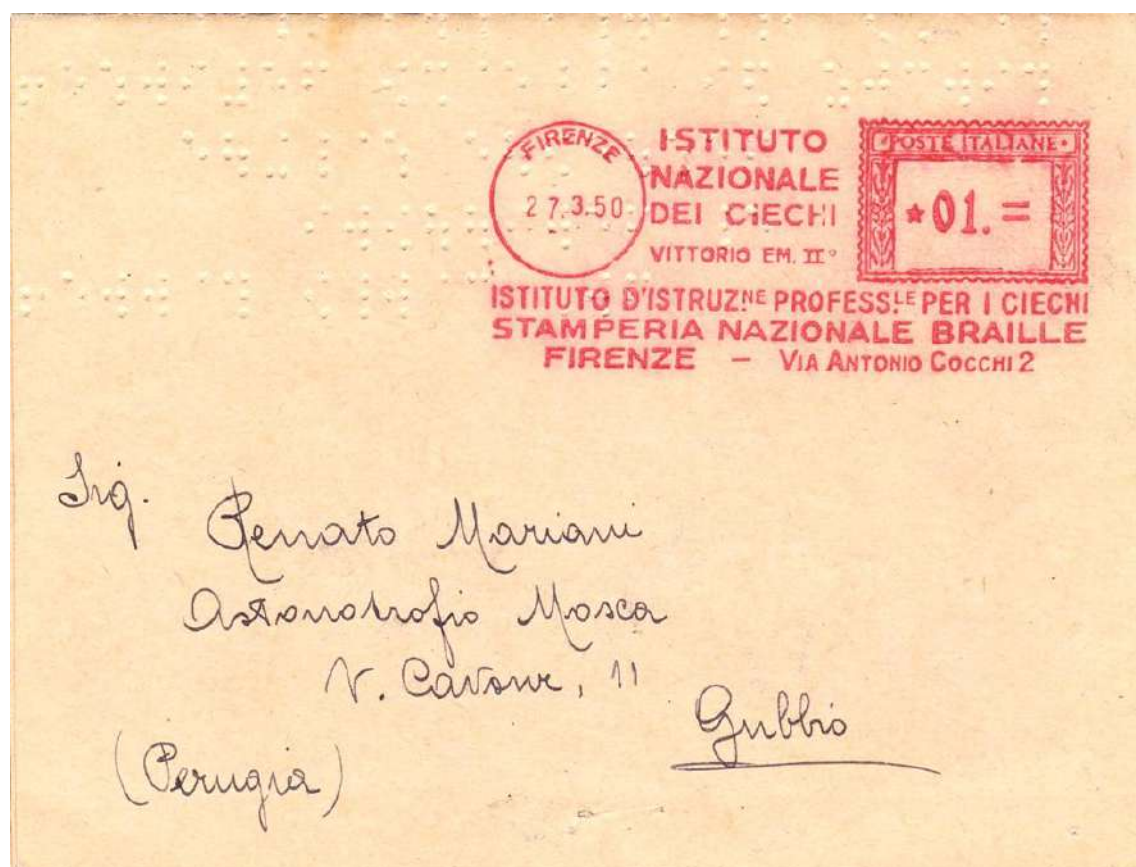 FIRENZE
27.3.50
ISTITUTO
NAZIONALE
DEI CIECHI
VITTORIO EM. II°
POSTE ITALIANE
*01.=
ISTITUTO D'ISTRUZ.NE PROFESS.LE PER I CIECHI
STAMPERIA NAZIONALE BRAILLE
FIRENZE – VIA ANTONIO COCCHI 2
Sig.
Renato Mariani
Mosca
V. Cavour, 11
Gubbio
(Perugia)